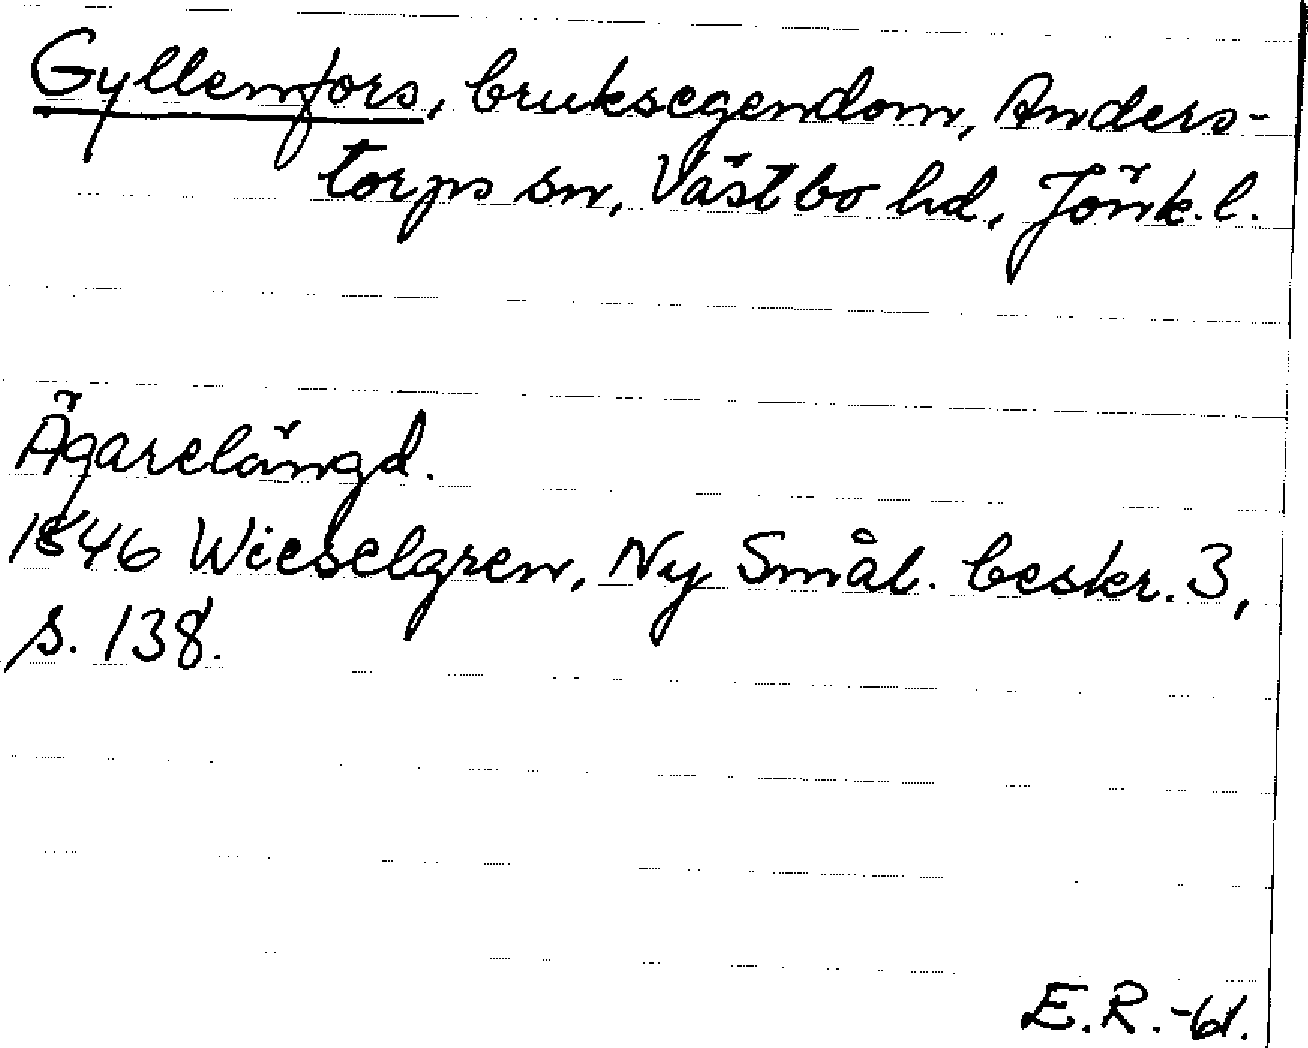 Gyllenfors, bruksegendom, Anders-
torps sn, Västbo hd, Jönk.l.
Ägarelängd.
1846 Wieselgren, Ny Smål. beskr. 3,
s. 138.
E.R.-61.